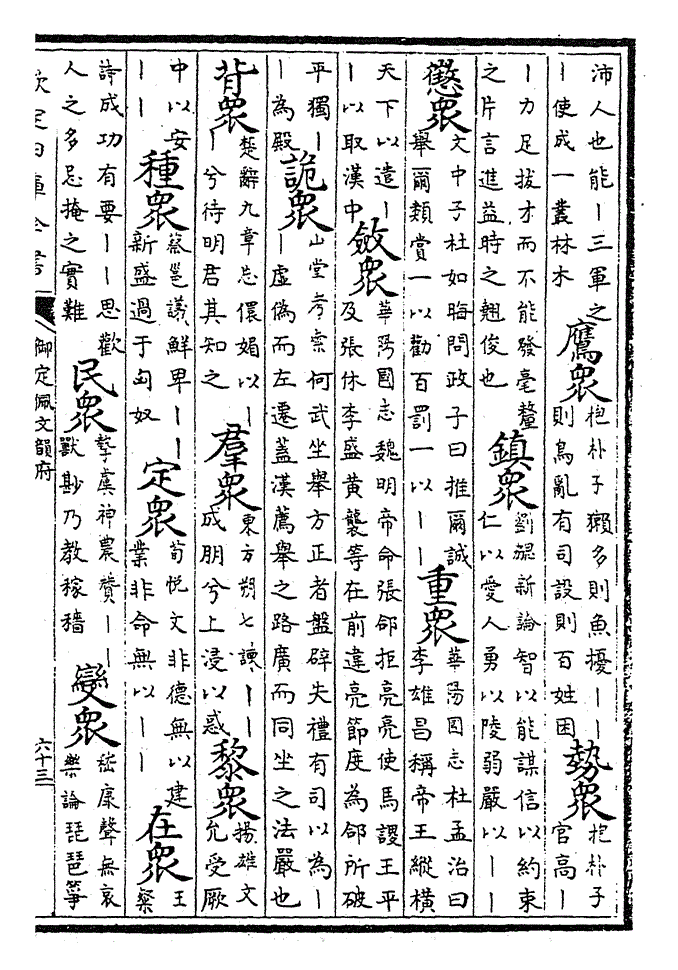 沛人也能｜三軍之｜使成一叢林木 鷹衆 抱朴子獺多則魚擾｜｜則鳥亂有司設則百姓困 勢衆 抱朴子官高｜
｜力足拔才而不能發毫釐之片言進益時之翹俊也 鎮衆 劉勰新論智以能謀信以約束仁以愛人勇以陵弱嚴以｜｜
懲衆 文中子杜如晦問政子曰推爾誠舉爾類賞一以勸百罰一以｜｜ 重衆 華陽国志杜孟治曰李雄昌稱帝王縱橫
天下以遣｜｜以取漢中 斂衆 華陽國志魏明帝命張郃拒亮亮使馬謖王平及張休李盛黄襲等在前違亮節度為郃所破
平獨｜｜為殿 詭衆 山堂考索何武坐舉方正者盤辟失禮有司以為｜｜虛偽而左遷蓋漢薦舉之路廣而同坐之法嚴也
背衆 楚辭九章忘儇媚以｜｜兮待明君其知之 羣衆 東方朔七諫｜｜成朋兮上浸以惑 黎衆 揚雄文允受厥
中以安｜｜ 種衆 蔡邕議鮮卑｜｜新盛過于匈奴 定衆 荀悅文非德無以建業非命無以｜｜ 在衆 王粲
詩成功有要｜｜思歡人之多忌掩之實難 民衆 摯虞神農贊｜｜獸尠乃教稼穡 變衆 嵇康聲無哀樂論琵琶箏
欽定四庫全書 御定佩文韻府 六十三